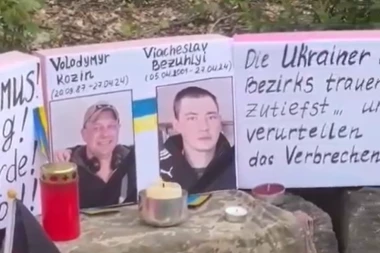 MUS!
g!
rde!
Volodymyr
Kozin
(20.09.87 - 27.04.24)
Viacheslav Bezuhlyi
(05.04.2001-27.04.24)
Die Ukrainer
Bezirks trauer
zutiefst... u
verurteilen
das Verbrechen